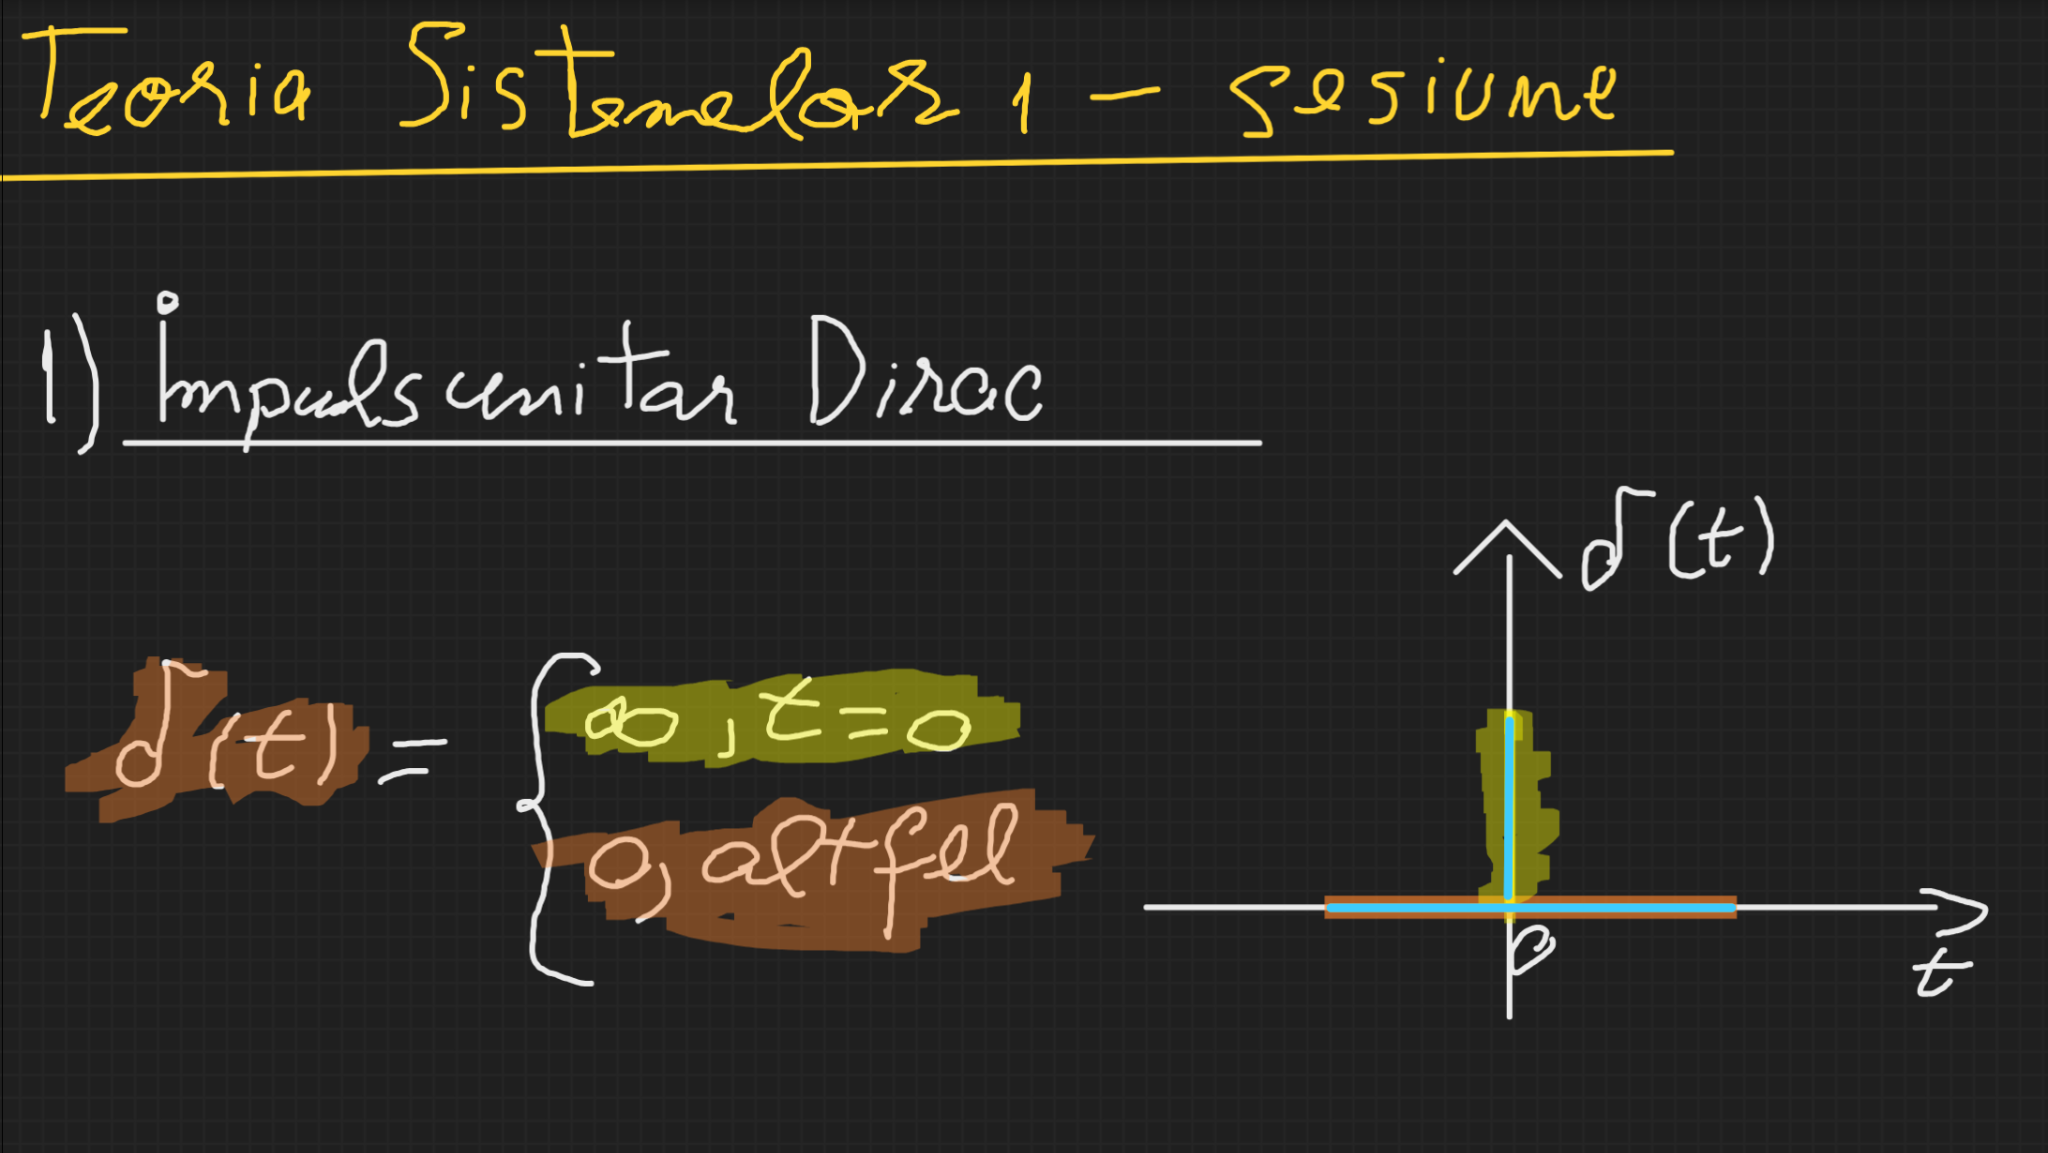 Teoria Sistemelor 1 - sesiune
1) Impuls unitar Dirac
δ(t)
δ(t) = { ∞, t = 0
0, altfel
0
t